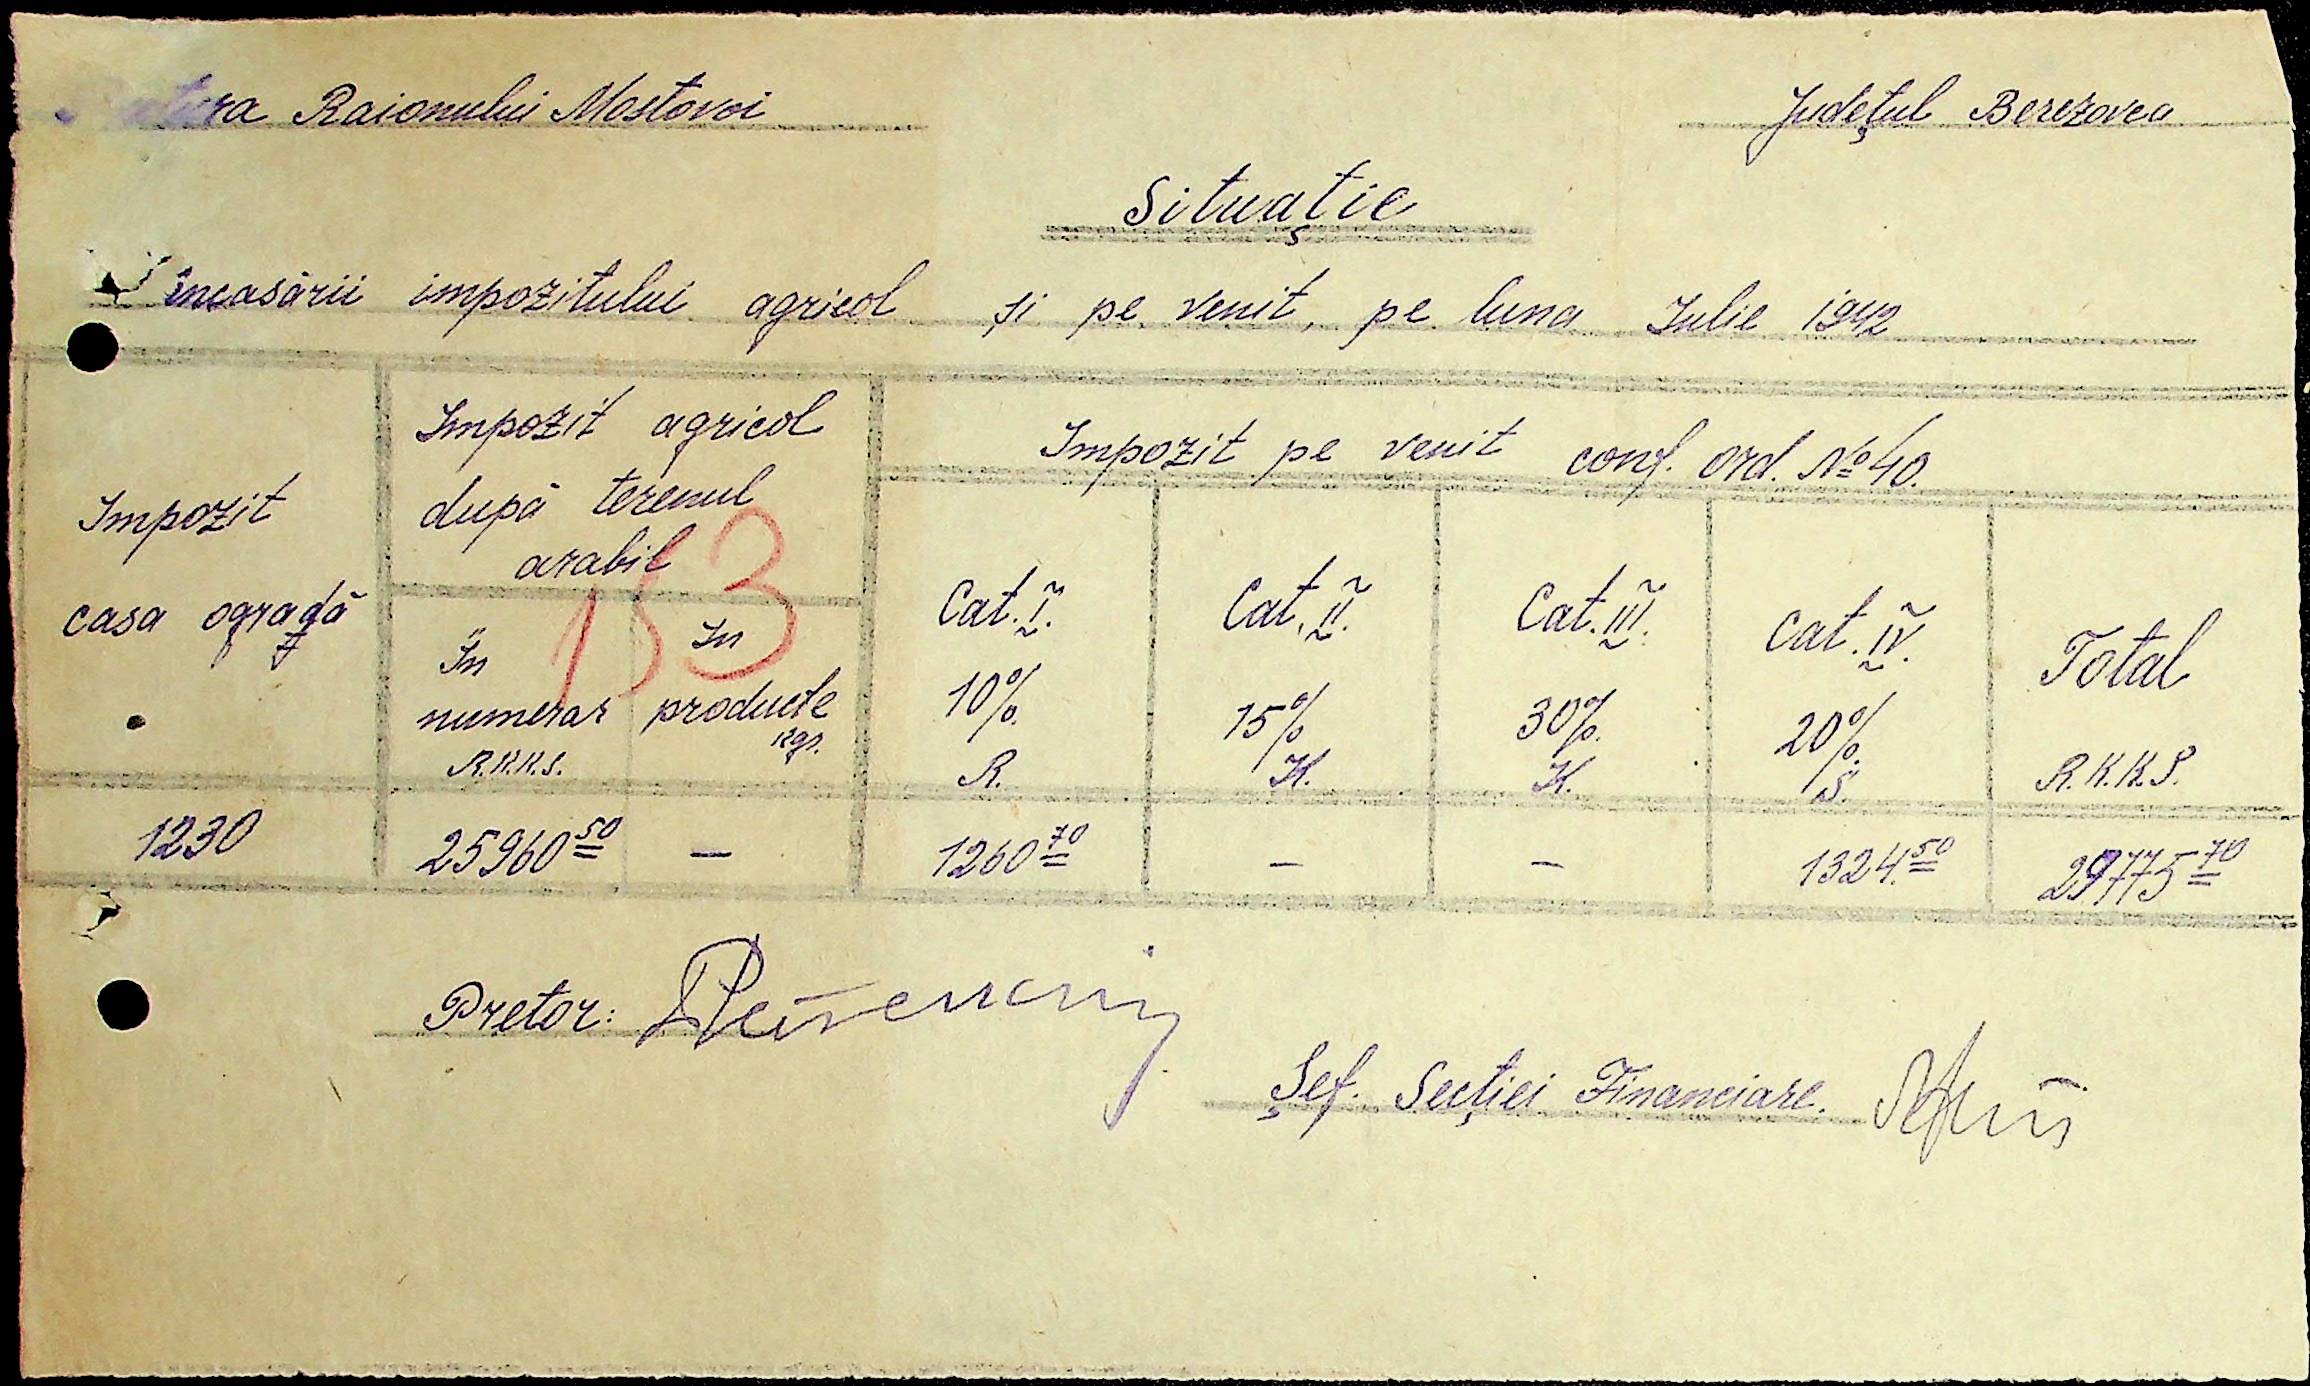 Raionului Mostovoi
Județul Berezovca
Situație
încasării impozitului agricol și pe venit, pe luna Iulie 1942
Impozit
casa ogradă
Impozit agricol
după terenul
arabil
În
numerar
R.K.K.S.
În
producte
kgr.
Impozit pe venit conf. ord. № 40.
Cat. I.
10%.
R.
Cat. II.
15%
K.
Cat. III.
30%.
K.
Cat. IV.
20%.
S.
Total
R.K.K.S.
1230
25960 50
—
1260 70
—
—
1324. 50
29775 70
153
Pretor:
Șef. Secției Financiare.